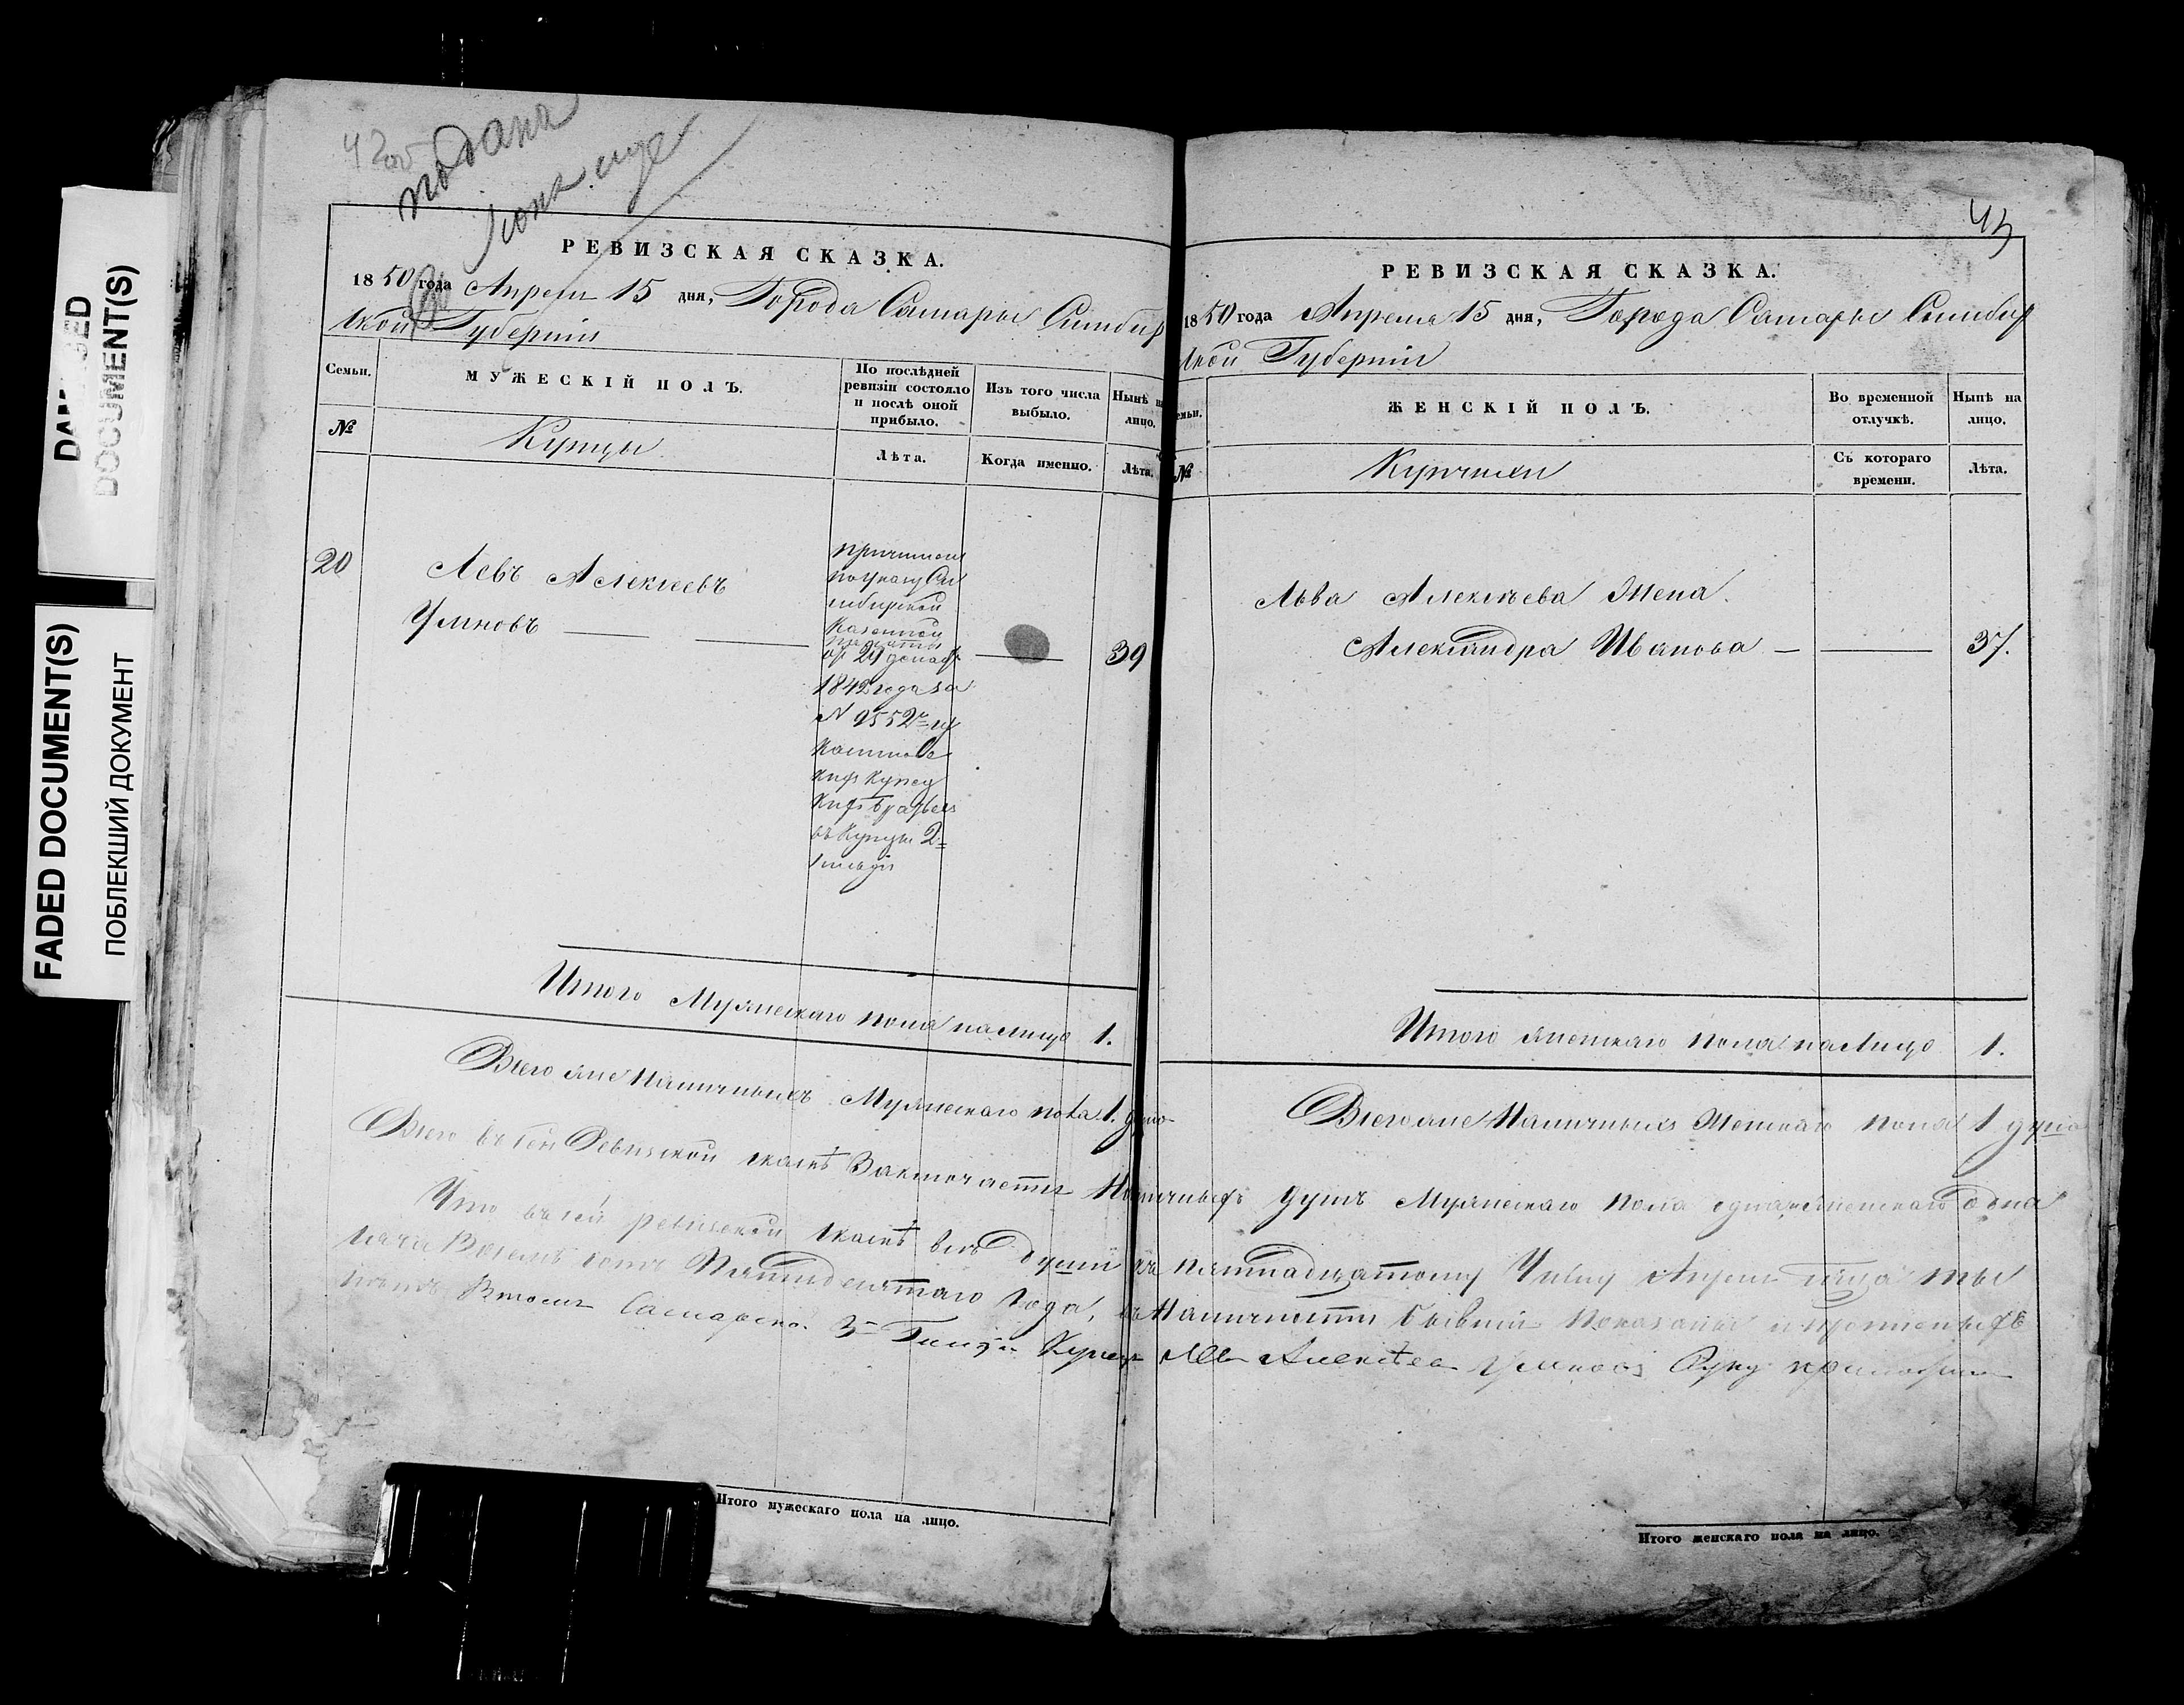 DAMAGED
DOCUMENT(S)
FADED DOCUMENT(S)
ПОБЛЕКШИЙ ДОКУМЕНТ
подана
РЕВИЗСКАЯ СКАЗКА.
1850 года Апреля 15 дня, Города Самары Симбир
ской Губернiи
Семьи.
№
МУЖЕСКІЙ ПОЛЪ.
Купцы
По послѣдней
ревизіи состояло
и послѣ оной
прибыло.
Лѣта.
Изъ того числа
выбыло.
Когда именно.
Нынѣ на
лицо.
Лѣта.
20
Левъ Алексеевъ
Умновъ
причислен
по указу Си
мбирской
Казенной
палаты
от 29 декаб
1842 года за
N 9552 из
купцы 2
39
Итого Мужескаго пола налицо 1.
Всего же Наличныхъ Мужескаго пола 1. душа
РЕВИЗСКАЯ СКАЗКА.
43
1850 года Апреля 15 дня, Города Самары Симбир
ской Губернiи
Семьи.
№
ЖЕНСКІЙ ПОЛЪ.
Купчихи
Во временной
отлучкѣ.
Съ котораго
времени.
Нынѣ на
лицо.
Лѣта.
Льва Алексѣева Жена
Александра Иванова
37.
Итого женскаго пола налицо 1.
Всего же Наличныхъ Женскаго пола 1 душа
Всего въ сей Ревизской сказкѣ Заключается Наличныхъ душъ Мужескаго пола одна женскаго одна
Что въ сей ревизской сказкѣ все души къ пятнадцатому Числу Апреля мца ты
сяча Восемь сотъ Пятидесятаго года, въ Наличности бывшiи показаны и
Самарской 3й Гильдiи Купец Лев Алексѣев Умновъ Руку приложил
Итого мужескаго пола на лицо.
Итого женскаго пола на лицо.